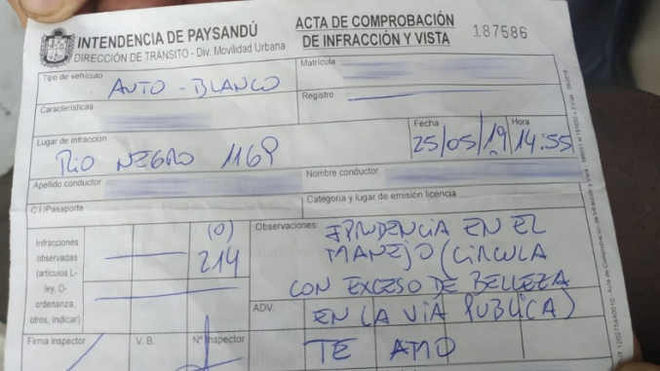 INTENDENCIA DE PAYSANDÚ
DIRECCIÓN DE TRÁNSITO - Div. Movilidad Urbana
ACTA DE COMPROBACIÓN
DE INFRACCIÓN Y VISTA
187586
Tipo de vehículo
AUTO - BLANCO
Matrícula
Características
Registro
Lugar de infracción
RIO NEGRO 1169
Fecha
25/05/19
Hora
14:55
Apellido conductor
Nombre conductor
C.I/Pasaporte
Categoría y lugar de emisión licencia
Infracciones
observadas
(artículos L-
ley, O-
ordenanza,
otros, indicar)
(O)
214
Observaciones:
EN EL
MANEJO (CIRCULA
CON EXCESO DE BELLEZA
ADV.
EN LA VÍA PUBLICA)
TE AMO
Firma inspector
V. B.
Nº Inspector